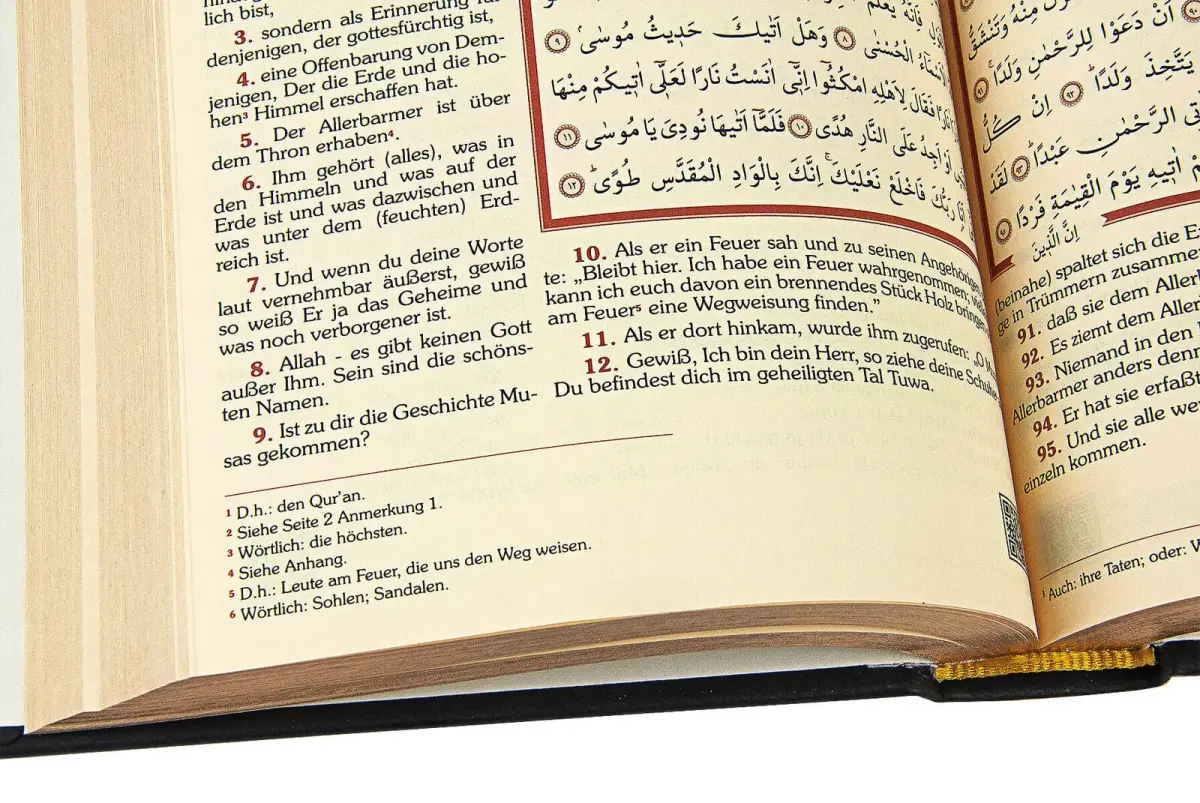 lich bist,
3. sondern als Erinnerung für
denjenigen, der gottesfürchtig ist,
4. eine Offenbarung von Dem-
jenigen, Der die Erde und die ho-
hen³ Himmel erschaffen hat.
5. Der Allerbarmer ist über
dem Thron erhaben⁴.
6. Ihm gehört (alles), was in
den Himmeln und was auf der
Erde ist und was dazwischen und
was unter dem (feuchten) Erd-
reich ist.
7. Und wenn du deine Worte
laut vernehmbar äußerst, gewiß
so weiß Er ja das Geheime und
was noch verborgener ist.
8. Allah - es gibt keinen Gott
außer Ihm. Sein sind die schöns-
ten Namen.
9. Ist zu dir die Geschichte Mu-
sas gekommen?
الْاَسْمَٓاءُ الْحُسْنٰى ﴿٨﴾ وَهَلْ اَتٰيكَ حَد۪يثُ مُوسٰىۢ ﴿٩﴾
نَارًا فَقَالَ لِاَهْلِهِ امْكُثُٓوا اِنّ۪ٓي اٰنَسْتُ نَارًا لَعَلّ۪ٓي اٰت۪يكُمْ مِنْهَا
اَوْ اَجِدُ عَلَى النَّارِ هُدًى ﴿١٠﴾ فَلَمَّٓا اَتٰيهَا نُودِيَ يَا مُوسٰى ﴿١١﴾
رَبُّكَ فَاخْلَعْ نَعْلَيْكَۚ اِنَّكَ بِالْوَادِ الْمُقَدَّسِ طُوًىۜ ﴿١٢﴾
10. Als er ein Feuer sah und zu seinen Angehörigen
te: „Bleibt hier. Ich habe ein Feuer wahrgenommen;
kann ich euch davon ein brennendes Stück Holz bringen
am Feuer⁵ eine Wegweisung finden.”
11. Als er dort hinkam, wurde ihm zugerufen: „O
12. Gewiß, Ich bin dein Herr, so ziehe deine Schuhe
Du befindest dich im geheiligten Tal Tuwa.
¹ D.h.: den Qur’an.
² Siehe Seite 2 Anmerkung 1.
³ Wörtlich: die höchsten.
⁴ Siehe Anhang.
⁵ D.h.: Leute am Feuer, die uns den Weg weisen.
⁶ Wörtlich: Sohlen; Sandalen.
مِنْهُ وَتَنْشَقُّ
﴿٩٠﴾ اَنْ دَعَوْا لِلرَّحْمٰنِ وَلَدًاۚ ﴿٩١﴾
يَتَّخِذَ وَلَدًاۜ ﴿٩٢﴾ اِنْ كُلُّ
الرَّحْمٰنِ عَبْدًاۜ ﴿٩٣﴾ لَقَدْ
اٰت۪يهِ يَوْمَ الْقِيٰمَةِ فَرْدًا ﴿٩٥﴾
اِنَّ الَّذ۪ينَ
(beinahe) spaltet sich die
ge in Trümmern zusamme
91. daß sie dem Allerb
92. Es ziemt dem Aller
93. Niemand in den
Allerbarmer anders denn
94. Er hat sie erfaßt
95. Und sie alle we
einzeln kommen.
¹ Auch: ihre Taten; oder: